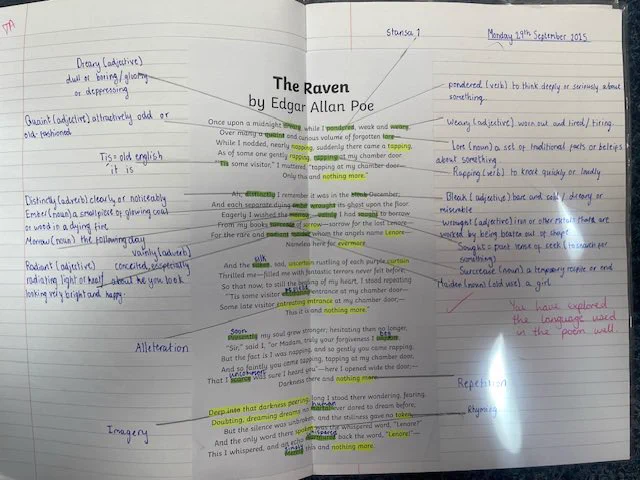 Stansa 1
Monday 29th September 2015
Dreary (adjective)
dull or boring/gloomy
or depressing
Quaint (adjective) attractively odd or
old-fashioned
Tis = old english
it is
Distinctly (adverb) clearly or noticeably
Ember (noun) a small piece of glowing coal
or wood in a dying fire
Morrow (noun) the following day
vainly (adverb)
conceited, especially
about the way you look
Radiant (adjective)
radiating light or heat
looking very bright and happy.
Alleteration
Imagery
The Raven
by Edgar Allan Poe
Once upon a midnight dreary, while I pondered, weak and weary,
Over many a quaint and curious volume of forgotten lore—
While I nodded, nearly napping, suddenly there came a tapping,
As of some one gently rapping, rapping at my chamber door.
"'Tis some visitor," I muttered, "tapping at my chamber door—
Only this and nothing more."
Ah, distinctly I remember it was in the bleak December;
And each separate dying ember wrought its ghost upon the floor.
Eagerly I wished the morrow;—vainly I had sought to borrow
From my books surcease of sorrow—sorrow for the lost Lenore—
For the rare and radiant maiden whom the angels name Lenore—
Nameless here for evermore.
silk
And the silken, sad, uncertain rustling of each purple curtain
Thrilled me—filled me with fantastic terrors never felt before;
So that now, to still the beating of my heart, I stood repeating
"'Tis some visitor entreating entrance at my chamber door—
Some late visitor entreating entrance at my chamber door;—
This it is and nothing more."
soon
Presently my soul grew stronger; hesitating then no longer,
beg
"Sir," said I, "or Madam, truly your forgiveness I implore;
But the fact is I was napping, and so gently you came rapping,
And so faintly you came tapping, tapping at my chamber door,
uncommon
That I scarce was sure I heard you"—here I opened wide the door;—
Darkness there and nothing more.
Deep into that darkness peering, long I stood there wondering, fearing,
human
Doubting, dreaming dreams no mortal ever dared to dream before;
But the silence was unbroken, and the stillness gave no token,
And the only word there spoken was the whispered word, "Lenore?"
whispered
This I whispered, and an echo murmured back the word, "Lenore!"—
simply
Merely this and nothing more.
pondered (verb) to think deeply or seriously about
something.
Weary (adjective) worn out and tired/tiring.
Lore (noun) a set of traditional facts or beleifs
about something.
Rapping (verb) to knock quickly or loudly
Bleak (adjective) bare and cold/dreary or
miserable
Wrought (adjective) iron or other metals that are
worked by being beaten out of shape
Sought = past tense of seek (to search for
something)
Surcease (noun) a temporary respite or end
Maiden (noun) (old use) a girl
You have explored
the language used
in the poem well.
Repetition
Rhyming